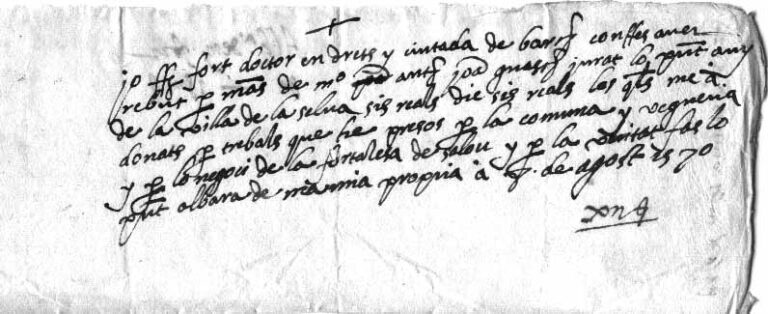 +
jo ffs fort doctor en drets y ciutada de barns confes aver
rebut per mās de mº antj joā jurat lo pnt any
de la villa de la selva sis reals dic sis reals los qls me á
donats per trebals que tic presos per la comuna y vegueria
y per lo negoci de la fortalesa de salou y per la veritat fas lo
pnt albara de mā mia propria á de agost 1570